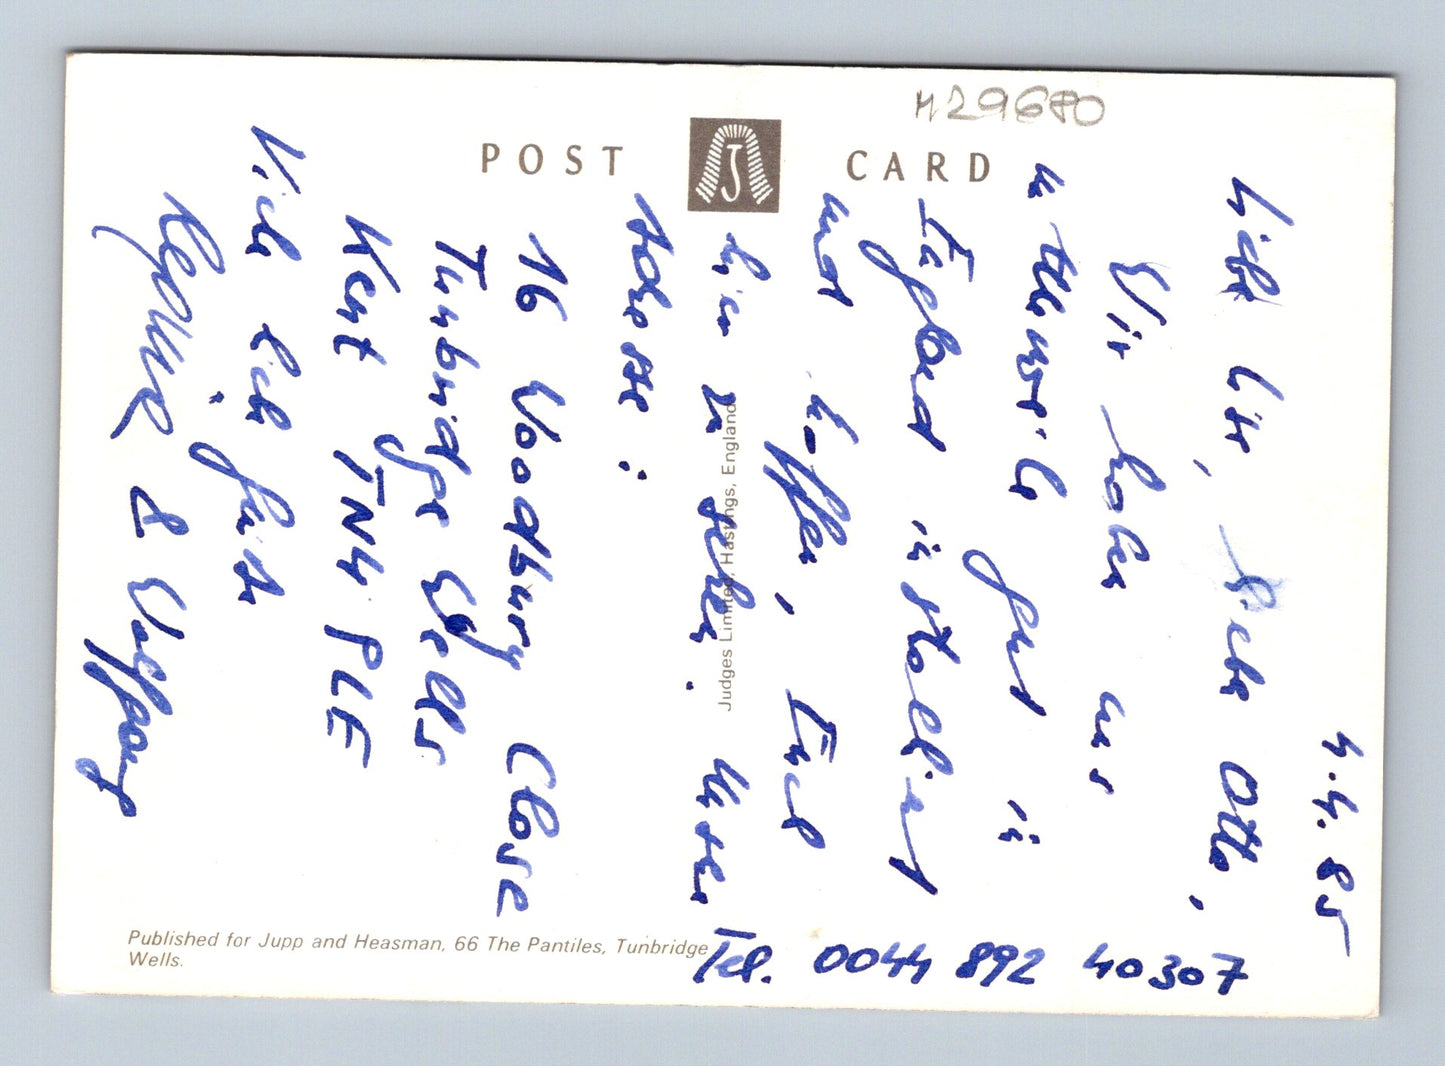 H29680
POST CARD
J
4.4.85
Liebe Lise, lieber Otto,
Wir haben uns
mittlerweile gut in
England installiert
und hoffen, Euch
hier zu sehen. Unsere
Adresse:
16 Woodbury Close
Tunbridge Wells
Kent TN4 PLE
Viele liebe Grüße
& Wolfgang
Tel. 0044 892 40307
Judges Limited, Hastings, England
Published for Jupp and Heasman, 66 The Pantiles, Tunbridge
Wells.